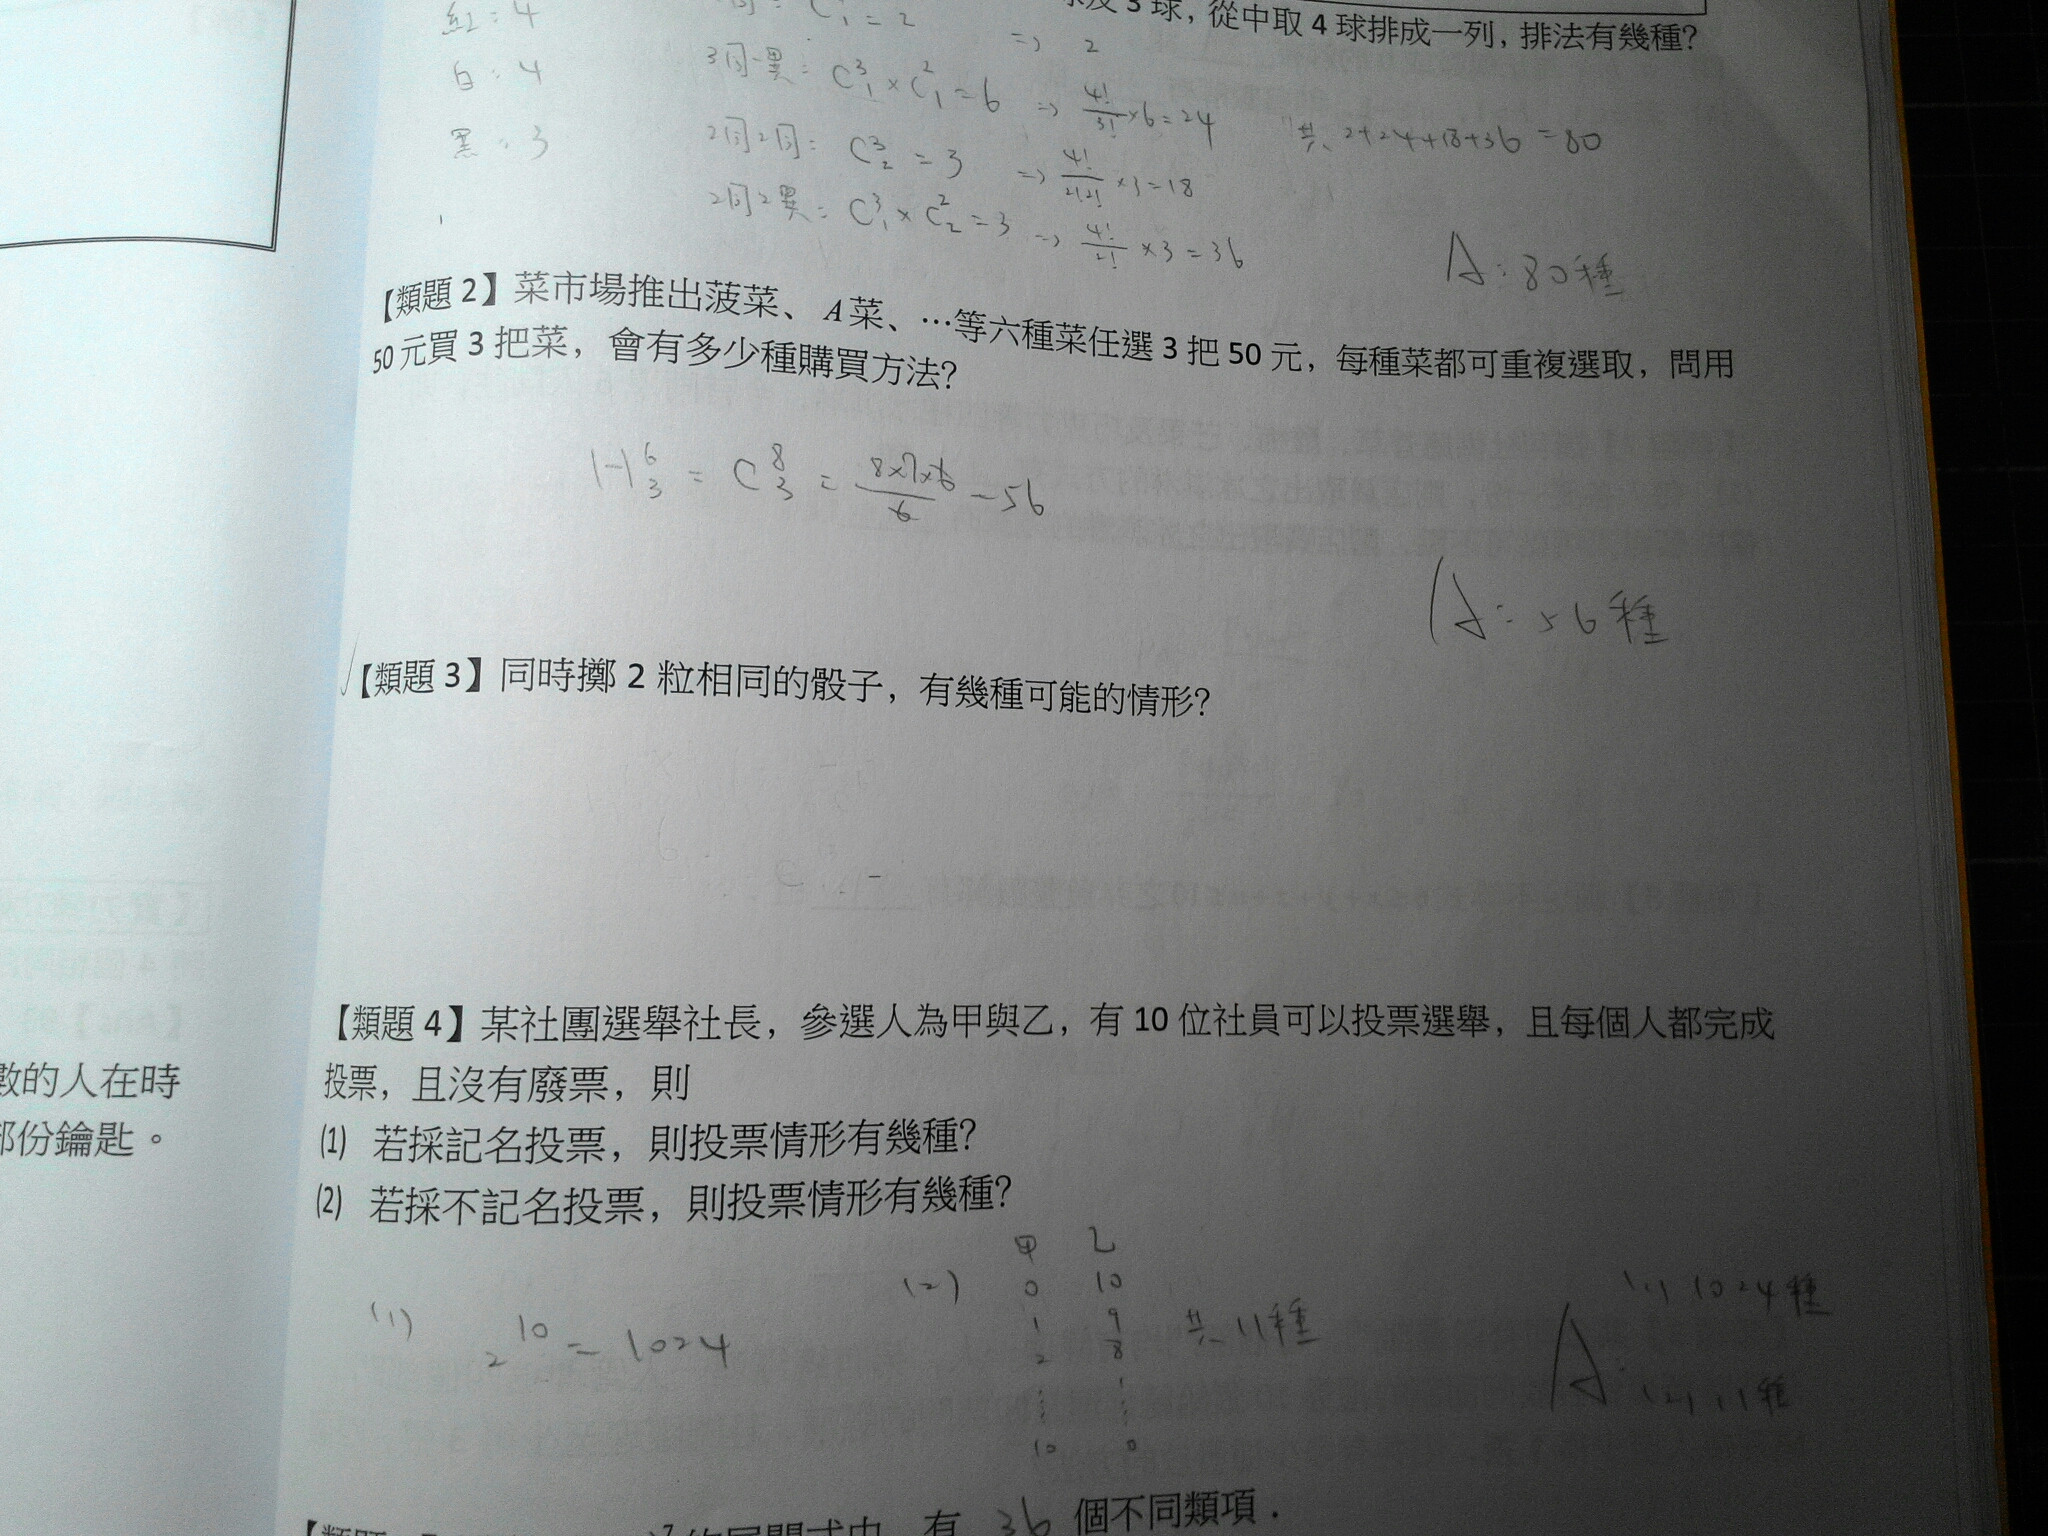 球及 3 球，從中取 4 球排成一列，排法有幾種？
紅：4
C²₁ = 2 => 2
白：4
3同一異：C³₁ × C²₁ = 6 => 4!/3! × 6 = 24
黑：3
2同2同：C³₂ = 3 => 4!/2!2! × 3 = 18
共 2+24+18+36 = 80
2同2異：C³₁ × C²₂ = 3 => 4!/2! × 3 = 36
A：80種
【類題 2】菜市場推出菠菜、A菜、…等六種菜任選 3 把 50 元，每種菜都可重複選取，問用
50 元買 3 把菜，會有多少種購買方法？
H⁶₃ = C⁸₃ = 8×7×6/6 = 56
A：56種
【類題 3】同時擲 2 粒相同的骰子，有幾種可能的情形？
【類題 4】某社團選舉社長，參選人為甲與乙，有 10 位社員可以投票選舉，且每個人都完成
投票，且沒有廢票，則
(1) 若採記名投票，則投票情形有幾種？
(2) 若採不記名投票，則投票情形有幾種？
(1) 2¹⁰ = 1024
(2) 甲 乙
0 10
1 9
2 8
⋮ ⋮
10 0
共 11種
A：(1) 1024種
(2) 11種
有 36 個不同類項．
數的人在時
部份鑰匙。